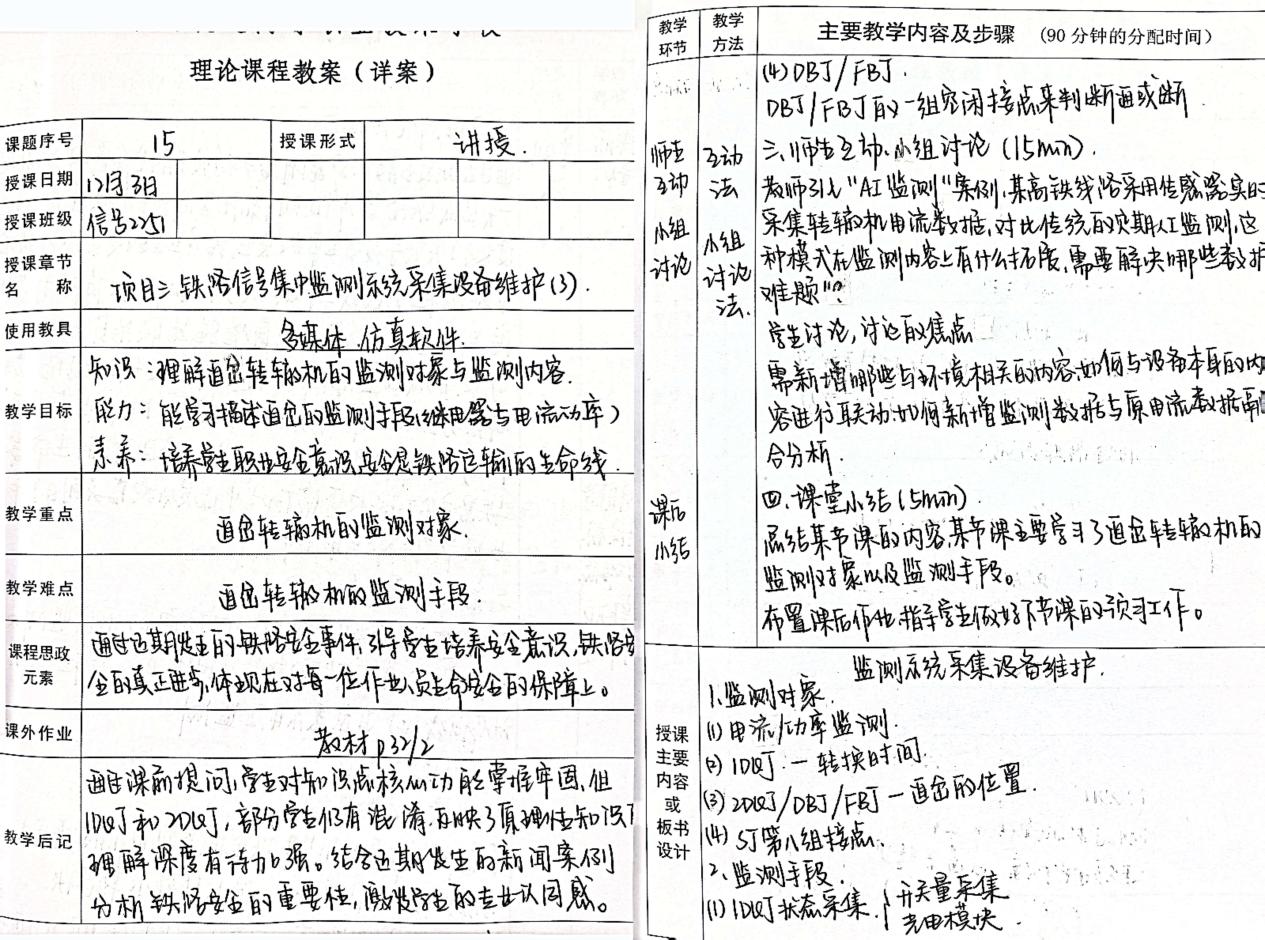 理论课程教案（详案）
课题序号 15 授课形式 讲授.
授课日期 12月3日
授课班级 信号2251
授课章节名称 项目三 铁路信号集中监测系统采集设备维护(3).
使用教具 多媒体.仿真软件.
教学目标
知识：理解道岔转辙机的监测对象与监测内容.
能力：能学习描述道岔的监测手段(继电器与电流功率)
素养：培养学生职业安全意识,安全是铁路运输的生命线.
教学重点 道岔转辙机的监测对象.
教学难点 道岔转辙机的监测手段.
课程思政元素
通过近期发生的铁路安全事件,引导学生培养安全意识,铁路安
全的真正进步,体现在对每一位作业人员生命安全的保障上。
课外作业 教材p32/2
教学后记
通过课前提问,学生对知识点核心功能掌握牢固,但
1DQJ和2DQJ,部分学生仍有混淆.反映了原理性知识
理解深度有待加强。结合近期发生的新闻案例
分析铁路安全的重要性,激发学生的专业认同感。
教学环节 教学方法 主要教学内容及步骤 （90分钟的分配时间）
(4)DBJ/FBJ.
DBJ/FBJ的一组空闲接点来判断通或断
师生互动 小组讨论
互动法 小组讨论法.
三.师生互动.小组讨论 (15min).
教师引出"AI监测"案例,某高铁线路采用传感器实时
采集转辙机电流数据,对比传统的定期人工监测,这
种模式在监测内容上有什么拓展,需要解决哪些数据
难题"?
学生讨论,讨论的焦点
需新增哪些与环境相关的内容,如何与设备本身的内
容进行联动.如何新增监测数据与原电流数据融
合分析.
课后小结
四.课堂小结(5min)
总结某节课的内容,某节课主要学习了道岔转辙机的
监测对象以及监测手段。
布置课后作业,指导学生做好下节课的预习工作。
授课主要内容或板书设计
监测系统采集设备维护.
1.监测对象.
(1)电流/功率监测.
(2)1DQJ.—转换时间.
(3)2DQJ/DBJ/FBJ—道岔的位置.
(4)SJ第八组接点.
2.监测手段.
(1)1DQJ状态采集.{开关量采集
光电模块.